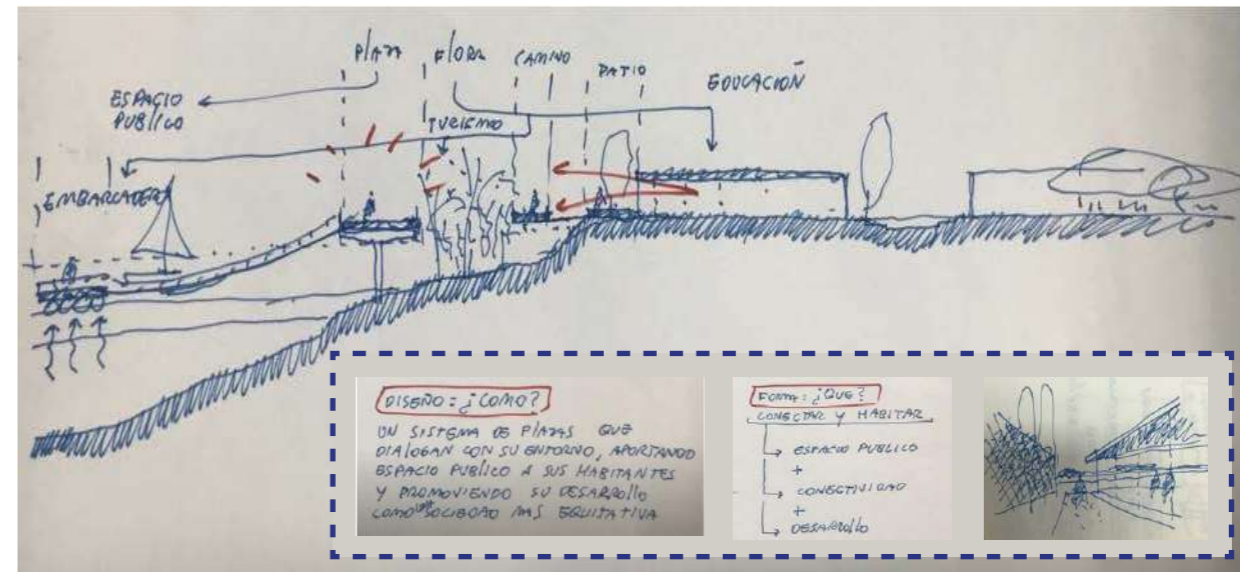 PLAZA
FLORA
CAMINO
PATIO
EDUCACIÓN
ESPACIO
PUBLICO
TURISMO
EMBARCADERO
DISEÑO: ¿COMO?
UN SISTEMA DE PLAZAS QUE
DIALOGAN CON SU ENTORNO, APORTANDO
ESPACIO PUBLICO A SUS HABITANTES
Y PROMOVIENDO SU DESARROLLO
COMO UNA SOCIEDAD MAS EQUITATIVA
FORMA: ¿QUE?
CONECTAR Y HABITAR
ESPACIO PUBLICO
+
CONECTIVIDAD
+
DESARROLLO